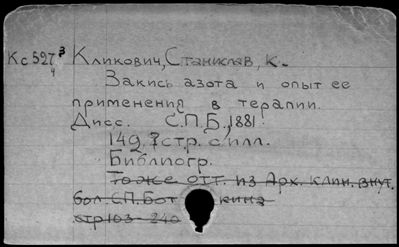 Кс527³ Кликович, Станислав, К.
4
Закись азота и опыт ее
применения в терапии.
Дисс. С.П.Б., 1881.
149, 7 стр. с илл.
Библиогр.
То же отт. из Арх. клин. внут.
бол. СП. Бот кина
стр 103-240